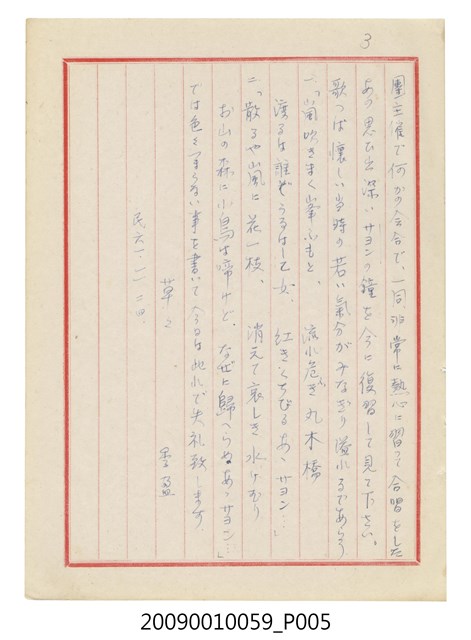 3
團主催で何かの会合で、一同非常に熱心に習って合習をした
あの思ひ出深いサヨンの鐘を今に復習して見て下さい。
歌へば懐しい当時の若い氣分がみなぎり溢れるであらう
一、「嵐吹きまく峯ふもと、 流水危き丸木橋
渡るは誰ぞうるはし乙女、 紅きくちびるあゝサヨン…」
二、「散るや嵐に花一枝、 消えて哀しき水けむり
お山の森に小鳥は啼けど、なぜに歸へらぬあゝサヨン…」
では色々つまらない事を書いて今日は此れで失礼致します
草々
民六一、二、二四、
20090010059_P005